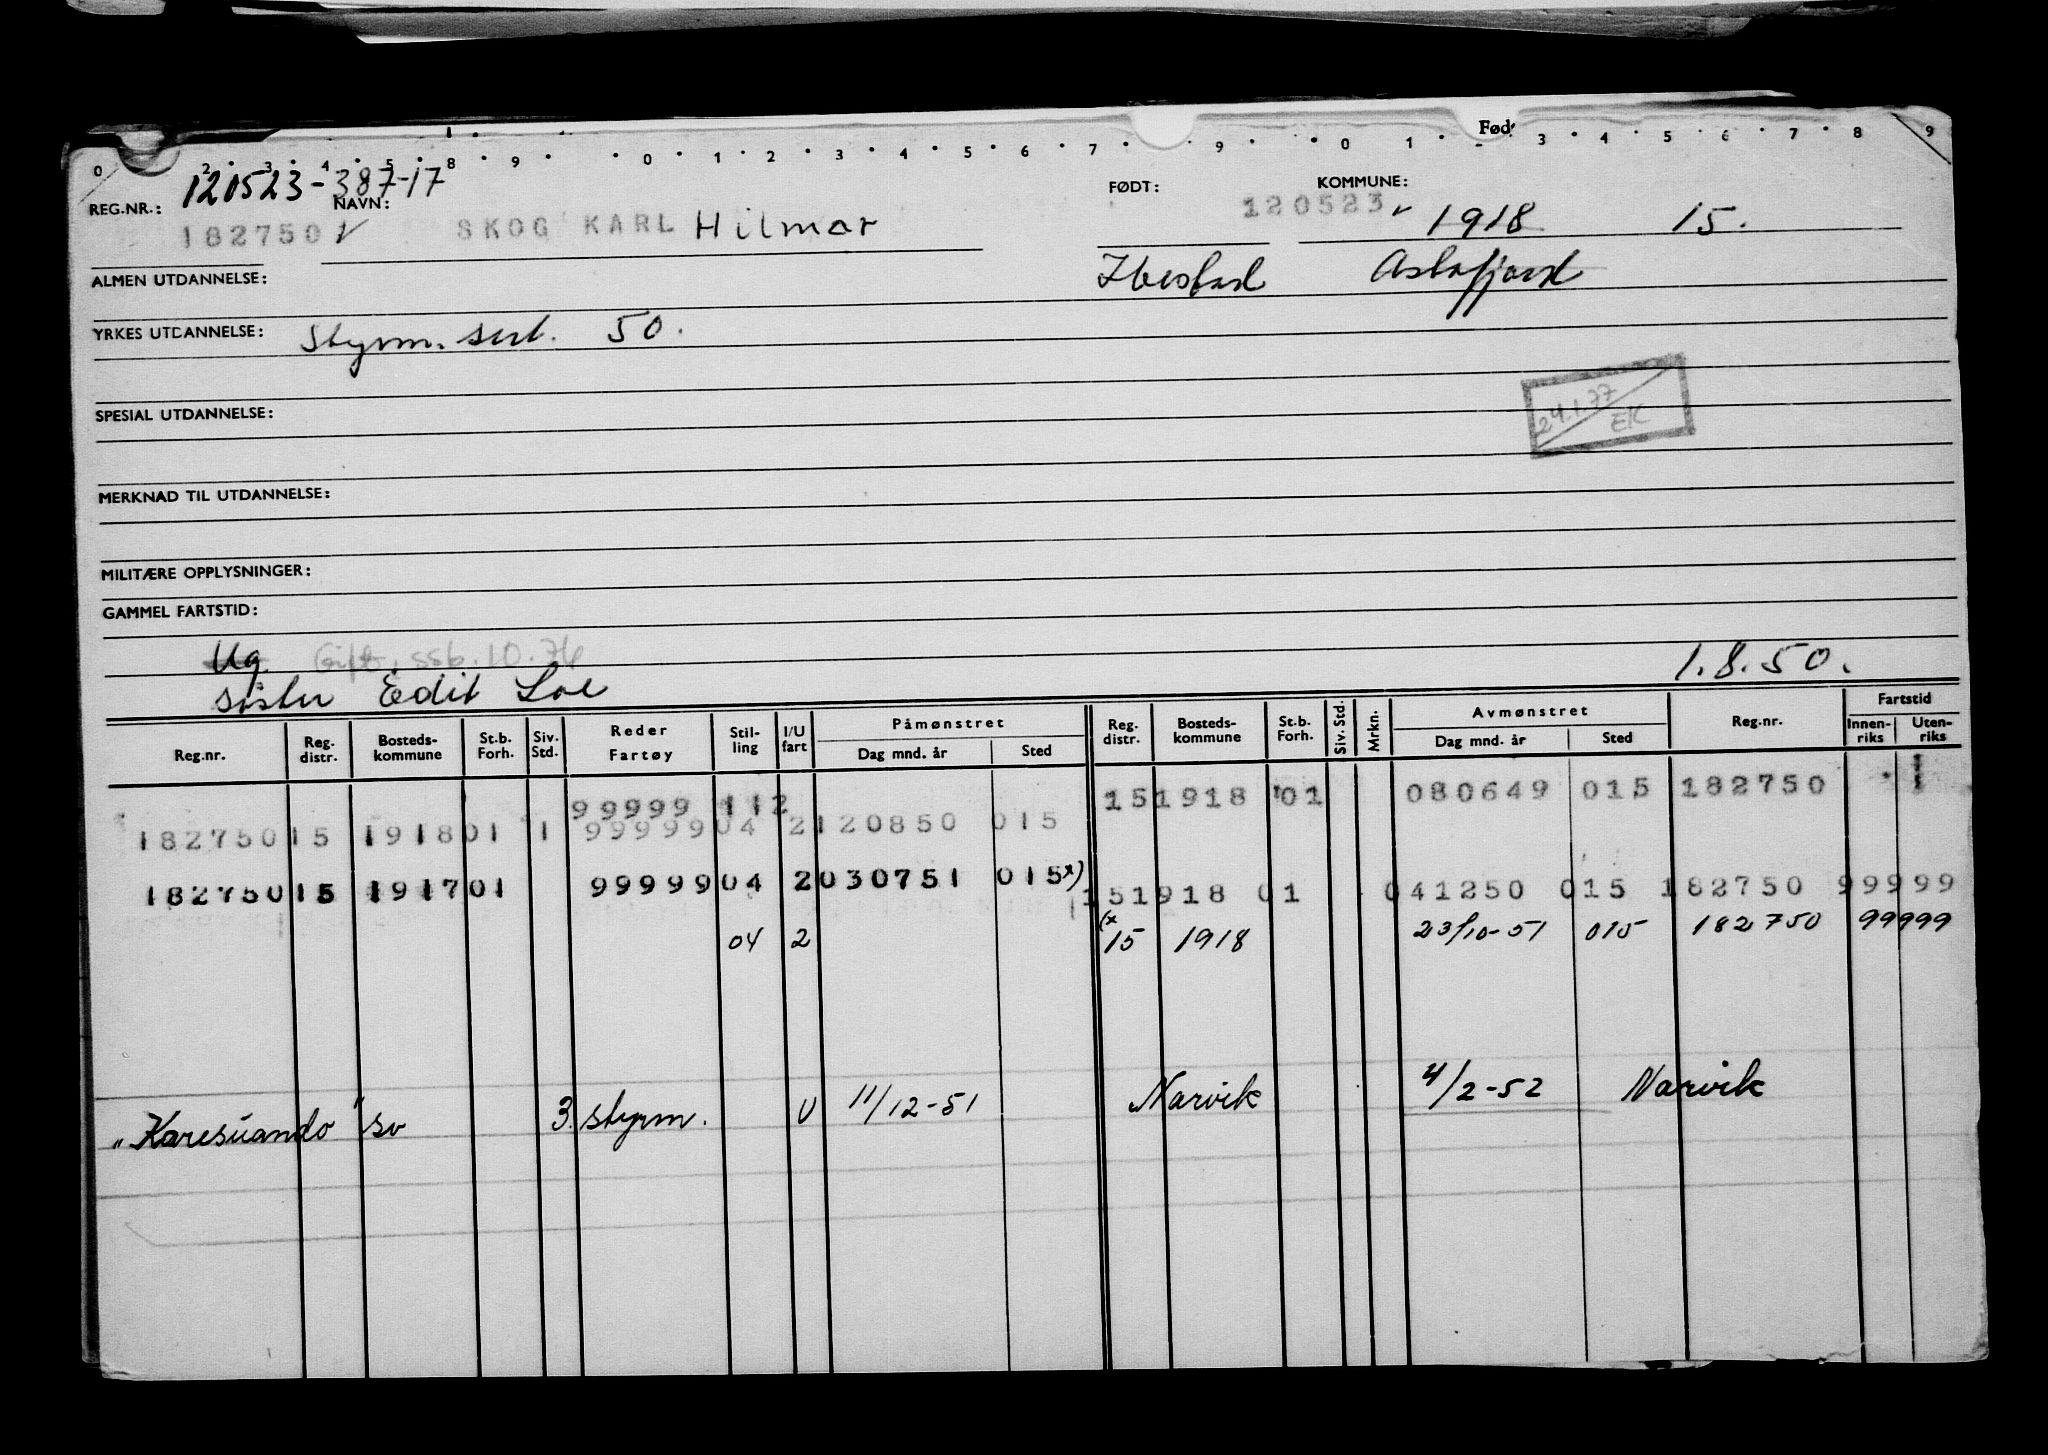 Fød
0 2 3 4 5 8 9 0 1 2 3 4 5 6 7 9 0 1 3 4 5 6 7 8 9
REG.NR.: 120523-387-17 NAVN: FØDT: KOMMUNE:
182750 SKOG KARL Hilmar 120523 1918 15.
ALMEN UTDANNELSE: Ibestad Astafjord
YRKES UTDANNELSE: Styrm. sert. 50.
24.1.77
EK
SPESIAL UTDANNELSE:
MERKNAD TIL UTDANNELSE:
MILITÆRE OPPLYSNINGER:
GAMMEL FARTSTID:
Ug Gift. ssb. 10.76 1.8.50.
søster Edit Loe
Reg.nr. Reg. distr. Bosteds- kommune St.b. Forh. Siv. Std. Reder Fartøy Stil- ling I/U fart Påmønstret Dag mnd. år Sted Reg. distr. Bosteds- kommune St.b. Forh. Siv. Std. Mrkn. Avmønstret Dag mnd. år Sted Reg.nr. Fartstid Innen- riks Uten- riks
99999 112 15 1918 01 080649 015 182750
182750 15 1918 01 1 99999 04 2 120850 015
182750 15 1917 01 99999 04 2 030751 015 x)
15 1918 01 041250 015 182750 99999
04 2 (x 15 1918 23/10-51 015 182750 99999
"Karesuando" sv 3. styrm. U 11/12-51 Narvik 4/2-52 Narvik